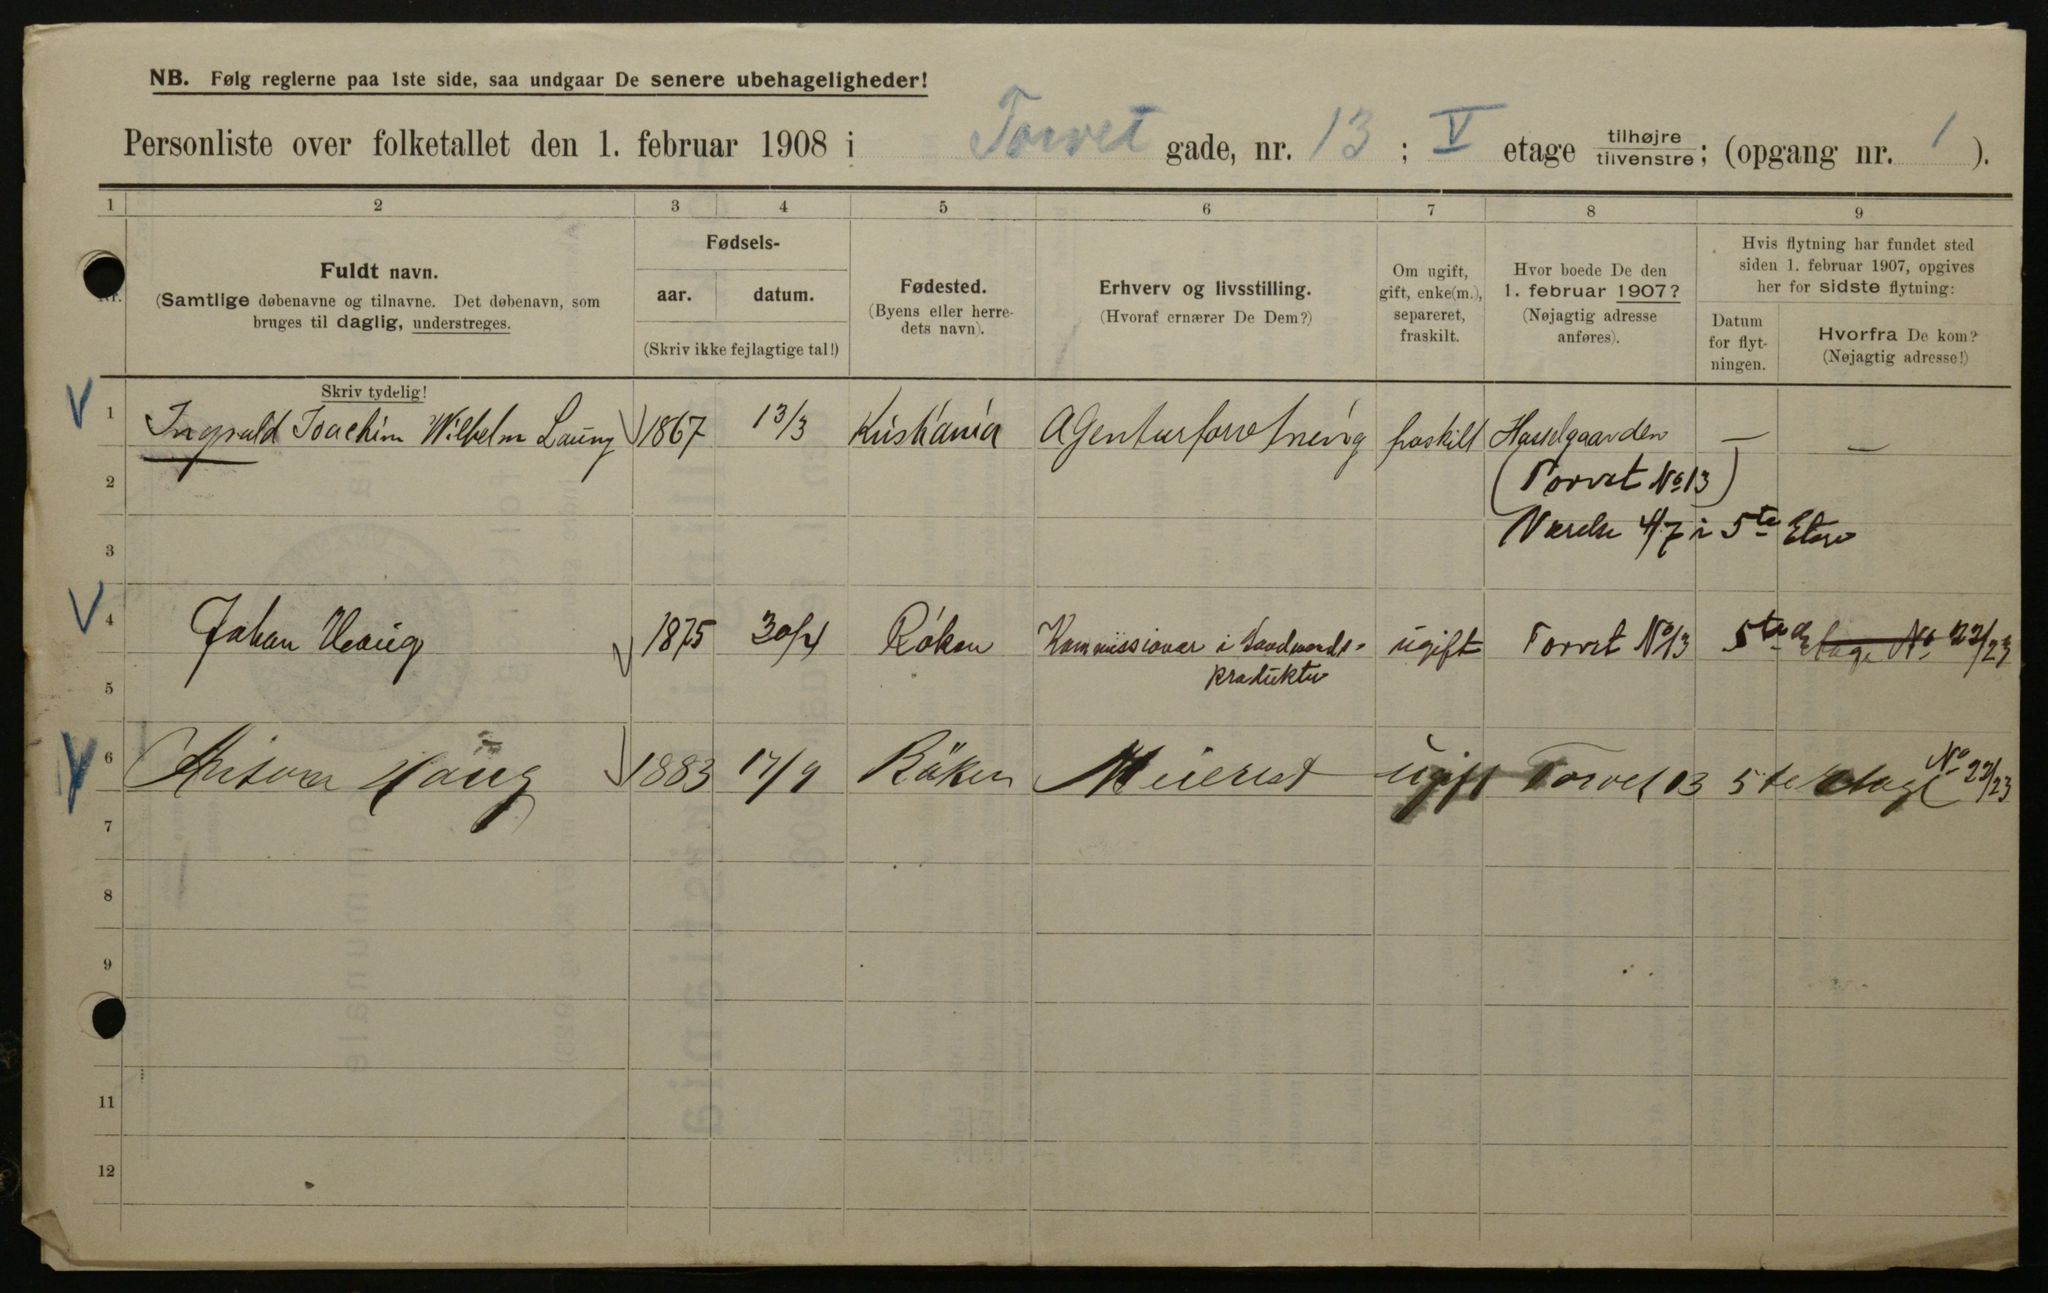 NB. Følg reglerne paa 1ste side, saa undgaar De senere ubehageligheder!
Personliste over folketallet den 1. februar 1908 i Torvet gade, nr. 13 ; V etage tilhøjre tilvenstre ; (opgang nr. 1 ).
1 2 3 4 5 6 7 8 9
Nr.
Fuldt navn.
(Samtlige døbenavne og tilnavne. Det døbenavn, som
bruges til daglig, understreges.
Skriv tydelig!
Fødsels-
aar. datum.
(Skriv ikke fejlagtige tal!)
Fødested.
(Byens eller herre-
dets navn).
Erhverv og livsstilling.
(Hvoraf ernærer De Dem?)
Om ugift,
gift, enke(m.),
separeret,
fraskilt.
Hvor boede De den
1. februar 1907?
(Nøjagtig adresse
anføres).
Hvis flytning har fundet sted
siden 1. februar 1907, opgives
her for sidste flytning:
Datum
for flyt-
ningen.
Hvorfra De kom?
(Nøjagtig adresse!)
1 Ingvald Joachim Wilhelm 1867 13/3 Kristiania Agenturforretning fraskilt Hasselgaarden — —
2 (Torvet No 13)
3 Værelse 4/7 i 5te Etage
4 Johan Haug 1875 30/4 Røken Kommissionær i Landmands- ugift Torvet No 13 5te Etage No 22/23
produkter
5
6 Haug 1883 17/9 Röken Meierist ugift Torvet 13 5te Etage No 22/23
7
8
9
11
12